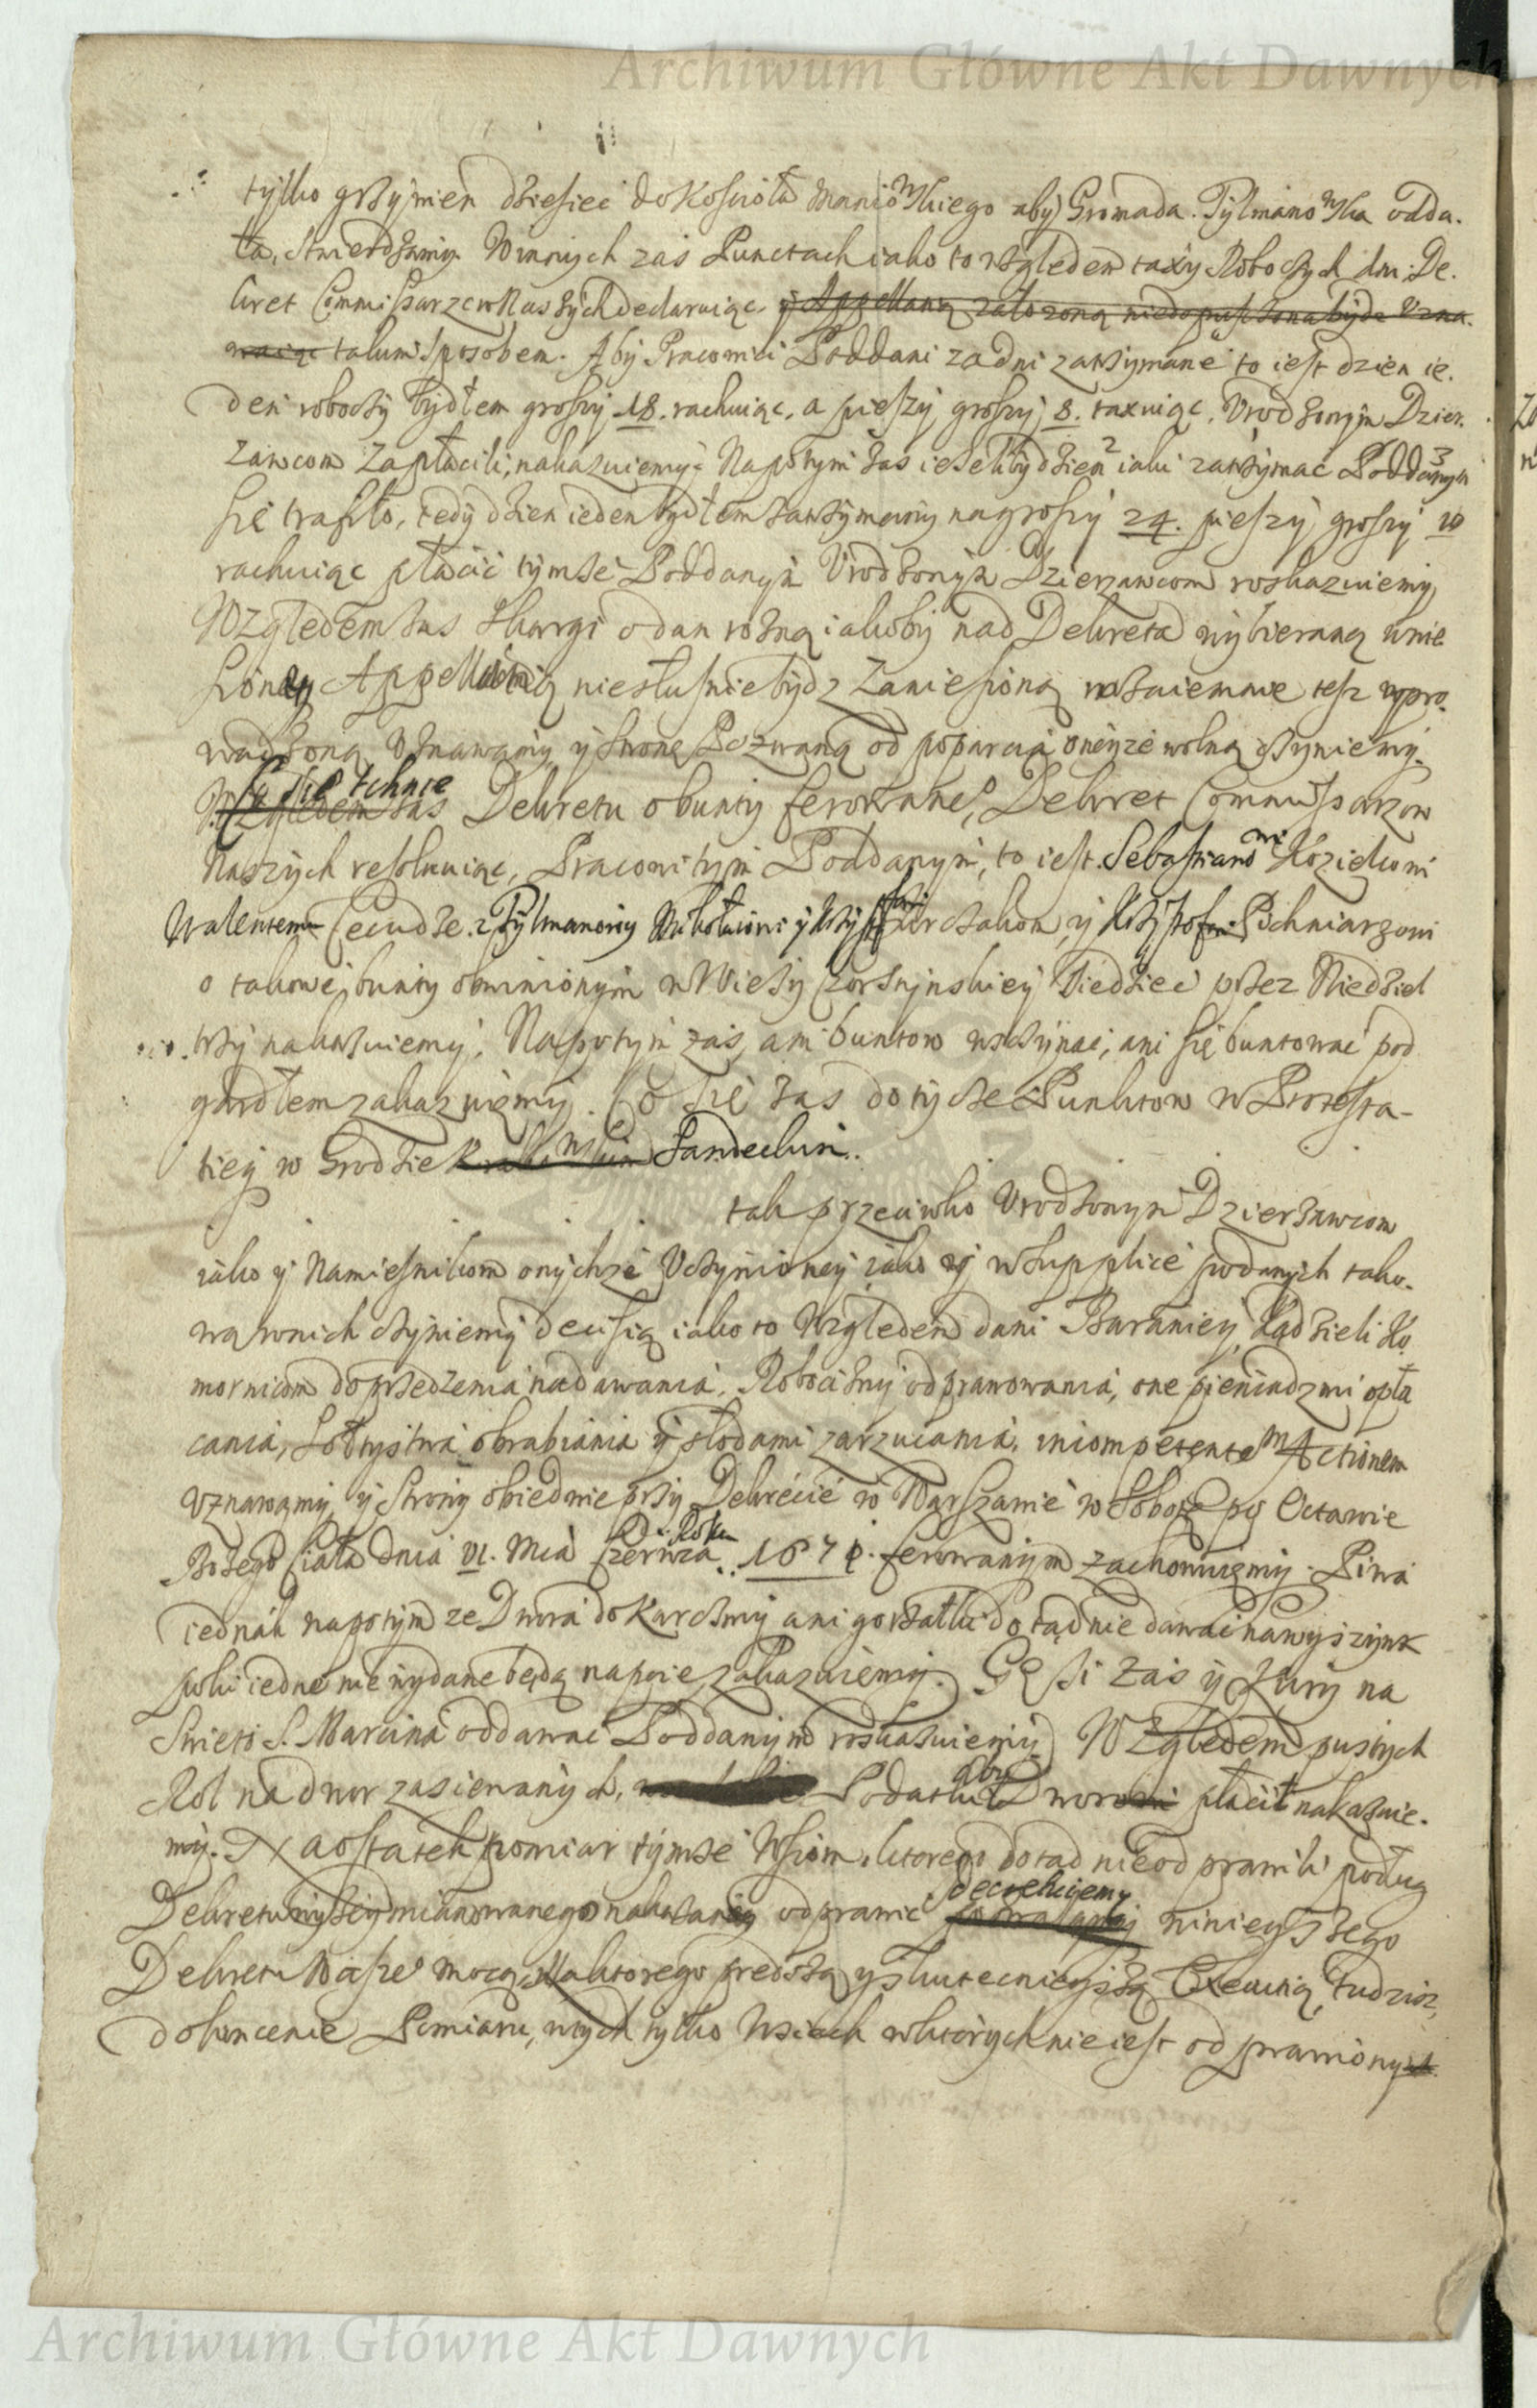 Archiwum Główne Akt Dawnych
tylko grzywien dziesięć do Kościoła Maniowskiego aby Gromada Tylmanowska odda.
ła, stwierdzamy. W innych zaś Punctach iako to względem taxy Roboczych dni De.
kret Commissarzew Naszych declaruiąc, y Appellacyą założoną niedopuszczona bydz Uzna.
waiąc takim sposobem. Aby Pracowici Poddani za dni zatrzymane to iest dzien ie.
den roboczy bydłem groszy 18. rachuiąc, a pieszy groszy 8. taxuiąc, Urodzonym Dzier.
żawcom zapłacili, nakazuiemy. Napotym zas ieżeliby dzien iaki zatrzymać Poddanym
się trafiło, tedy dzien ieden bydłem zatrzymany na groszy 24. pieszy groszy 10
rachuiąc płacić tymże Poddanym Urodzonym Dzierzawcom roskazuiemy
Względem zas skargi o dan rożną iakoby nad Dekreta wybieraną wnie
sioney Appellacyą niesłusznie bydz zaniesioną wpro.
wadzoną Uznawamy, y stronę Pozwaną od poparcia oneyze wolną czyniemy.
Co się tchnie
Względem zas Dekretu o bunty ferowane, Dekret Commissarzow
Naszych resolwuiąc, Pracowitym Poddanym, to iest Sebastianowi Kozielkowi
Walentemu Cecudze z Tylmanowy Mikołaiowi y y Krzysztofowi Pichniarzowi
o takowe bunty obwinionym w Wieży Czorsztynskiey siedzieć przez Niedziel
trzy nakazuiemy. Napotym zaś, ani buntow wszczynać, ani się buntować pod
gardłem zakazuiemy. Co się zas dotycze Punktow w Protesta-
tiey w Grodzie Krakowskim Sandeckim.
tak przeciwko Urodzonym Dzierżawcom
iako y Namiesnikom onychże Uczynioney iako y w Supplice podanych tako.
wą w nich czyniemy decisią iako to Względem dani Baraniey, Kądzieli Ko
mornicom do przedzenia nadawania, Robocizny odprawowania, one pieniadzmi opła
cania, Sołtystwa obrabiania y słodami zarzucania, incompetentem Actionem
Uznawamy, y strony obiedwie przy Dekrecie w Warszawie w Sobotę po Octawie
Bożego Ciała dnia VI. Mca Czerwca Roku 1671. ferowanym zachowuiemy. Piwa
iednak napotym ze Dwora do Karczmy ani gorzałki dotąd nie dawać na wyszynk
poki iedne nie wydane będą napoie, zakazuiemy. Gęsi zaś y Kury na
Swieto S. Marcina oddawać Poddanym roskazuiemy. Względem pustych
Rol na dwor zasiewanych, Podatki aby Dwor płacił nakazuie.
my. A ostatek pomiar tymże Wsiom, ktorego dotąd nie odprawili podług
Dekretu wyżeymianowanego nakazany odprawić decretuiemy ninieyszego
Dekretu Naszego mocą, Na ktorego prędszą y skutecznieyszą Exekucią, tudziesz
dokonczenie Pomiaru, w tych tylko Wsiach w ktorych nie iest odprawiony
Archiwum Główne Akt Dawnych